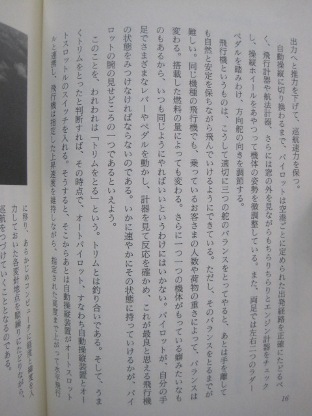 出力へと推力を下げて、巡航速力を保つ。
自動操縦に切り換わるまで、パイロットは空港ごとに定められた出発経路を正確にたどるべ
く、飛行計器や航法計器、さらには窓の外を見ながらもちらりちらりとエンジン計器をチェック
し、操縦ホイールをあやつって機体の姿勢を微調整している。また、両足では左右二つのラダー
ペダルを踏みわけ、方向舵の向きを調節する。
飛行機というものは、こうして適切に三つの舵のバランスをとってやると、あとは手を離して
も自然と安定を保ちながら飛んでいけるようにできている。ただし、そのバランスをとるまでが
難しい。同じ機種の飛行機でも、乗っているお客さまの人数や荷物の重さによって、バランスは
変わる。搭載した燃料の量によっても変わる。さらに一つ一つの機体がもっている癖みたいなも
のもあるから、いつも同じようにやればいいというわけにはいかない。パイロットが、自分の手
足でさまざまなレバーやペダルを動かし、計器を見て反応を確かめ、これが最良と思える飛行機
の状態をみつけなければならないのである。いかに速やかにその状態に持っていけるかが、パイ
ロットの腕の見せどころの一つであるといえよう。
このことを、われわれは「トリムをとる」という。トリムとは釣り合いである。そして、うま
くトリムをとったと判断すれば、その時点で、オートパイロット、すなわち自動操縦装置とオー
トスロットルのスイッチを入れる。そうすると、そこからあとは自動操縦装置がオートスロット
ルと連携し、飛行機は指定した上昇速度を維持しながら、指定された高度まで上昇して水平飛行
に移り、あらかじめ
力しておいた各変針地点を順繰りにたどりながら、
巡航をつづけていくこととなるのである。
16